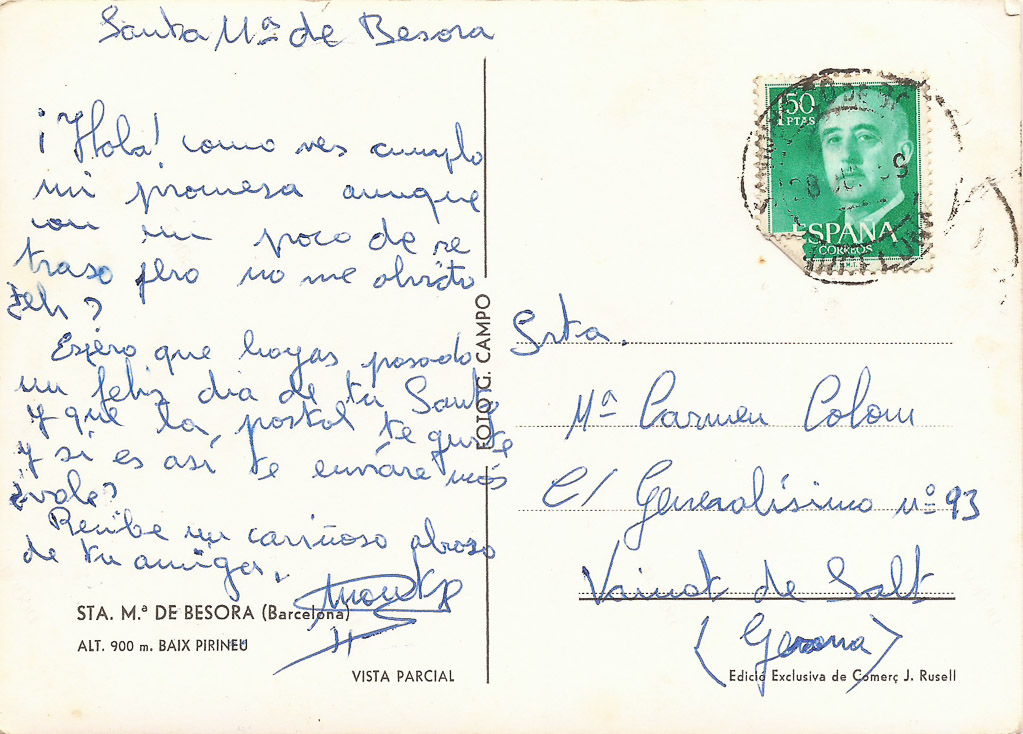 Santa Mª de Besora
¡Hola! como ves cumplo
mi promesa aunque
con un poco de re
traso pero no me olvido
Eh?
Espero que hayas pasado
un feliz dia de tu Santo
y que la postal te guste
y si es así te enviáre más
¿vale?
Recibe un cariñoso abrazo
de tu amiga,
STA. M.ª DE BESORA (Barcelona)
ALT. 900 m. BAIX PIRINEU
VISTA PARCIAL
FOTO G. CAMPO
1'50
PTAS
ESPAÑA
CORREOS
Srta.
Mª Carmen Colom
C/ Generalísimo nº 93
Vainat de Salt
(Gerona)
Edició Exclusiva de Comerç J. Rusell